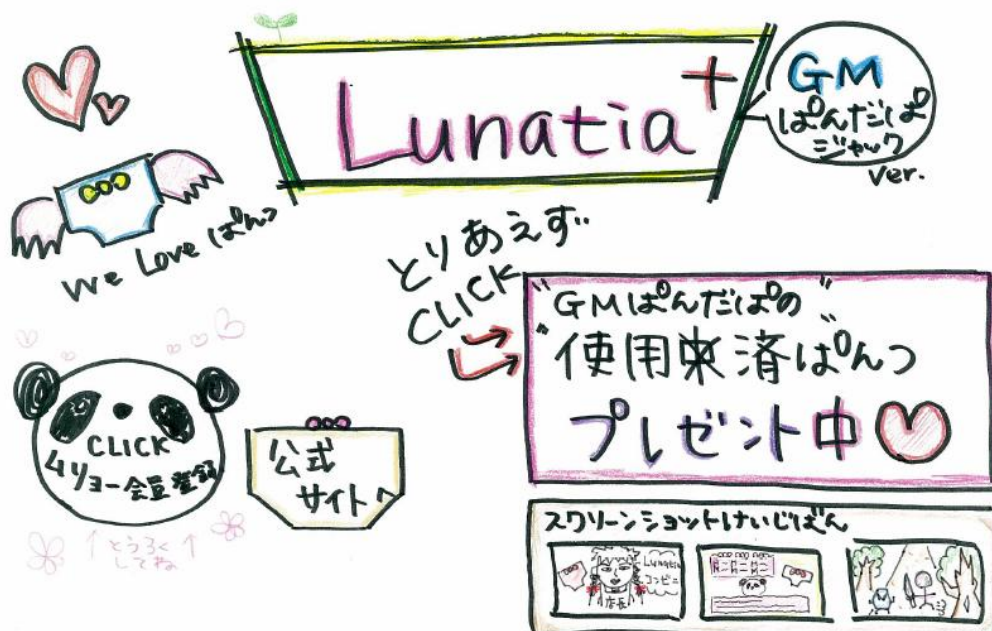 Lunatia+
GM
ぱんだぱ
ジャック
ver.
We Love ぱんつ
とりあえず
CLICK
"GMぱんだぱの"
"使用済ぱんつ
プレゼント中
CLICK
ムリョー会員登録
↑とうろく↑
してね
公式
サイトへ
スクリーンショットけいじばん
Lunatia
コンビニ
店長